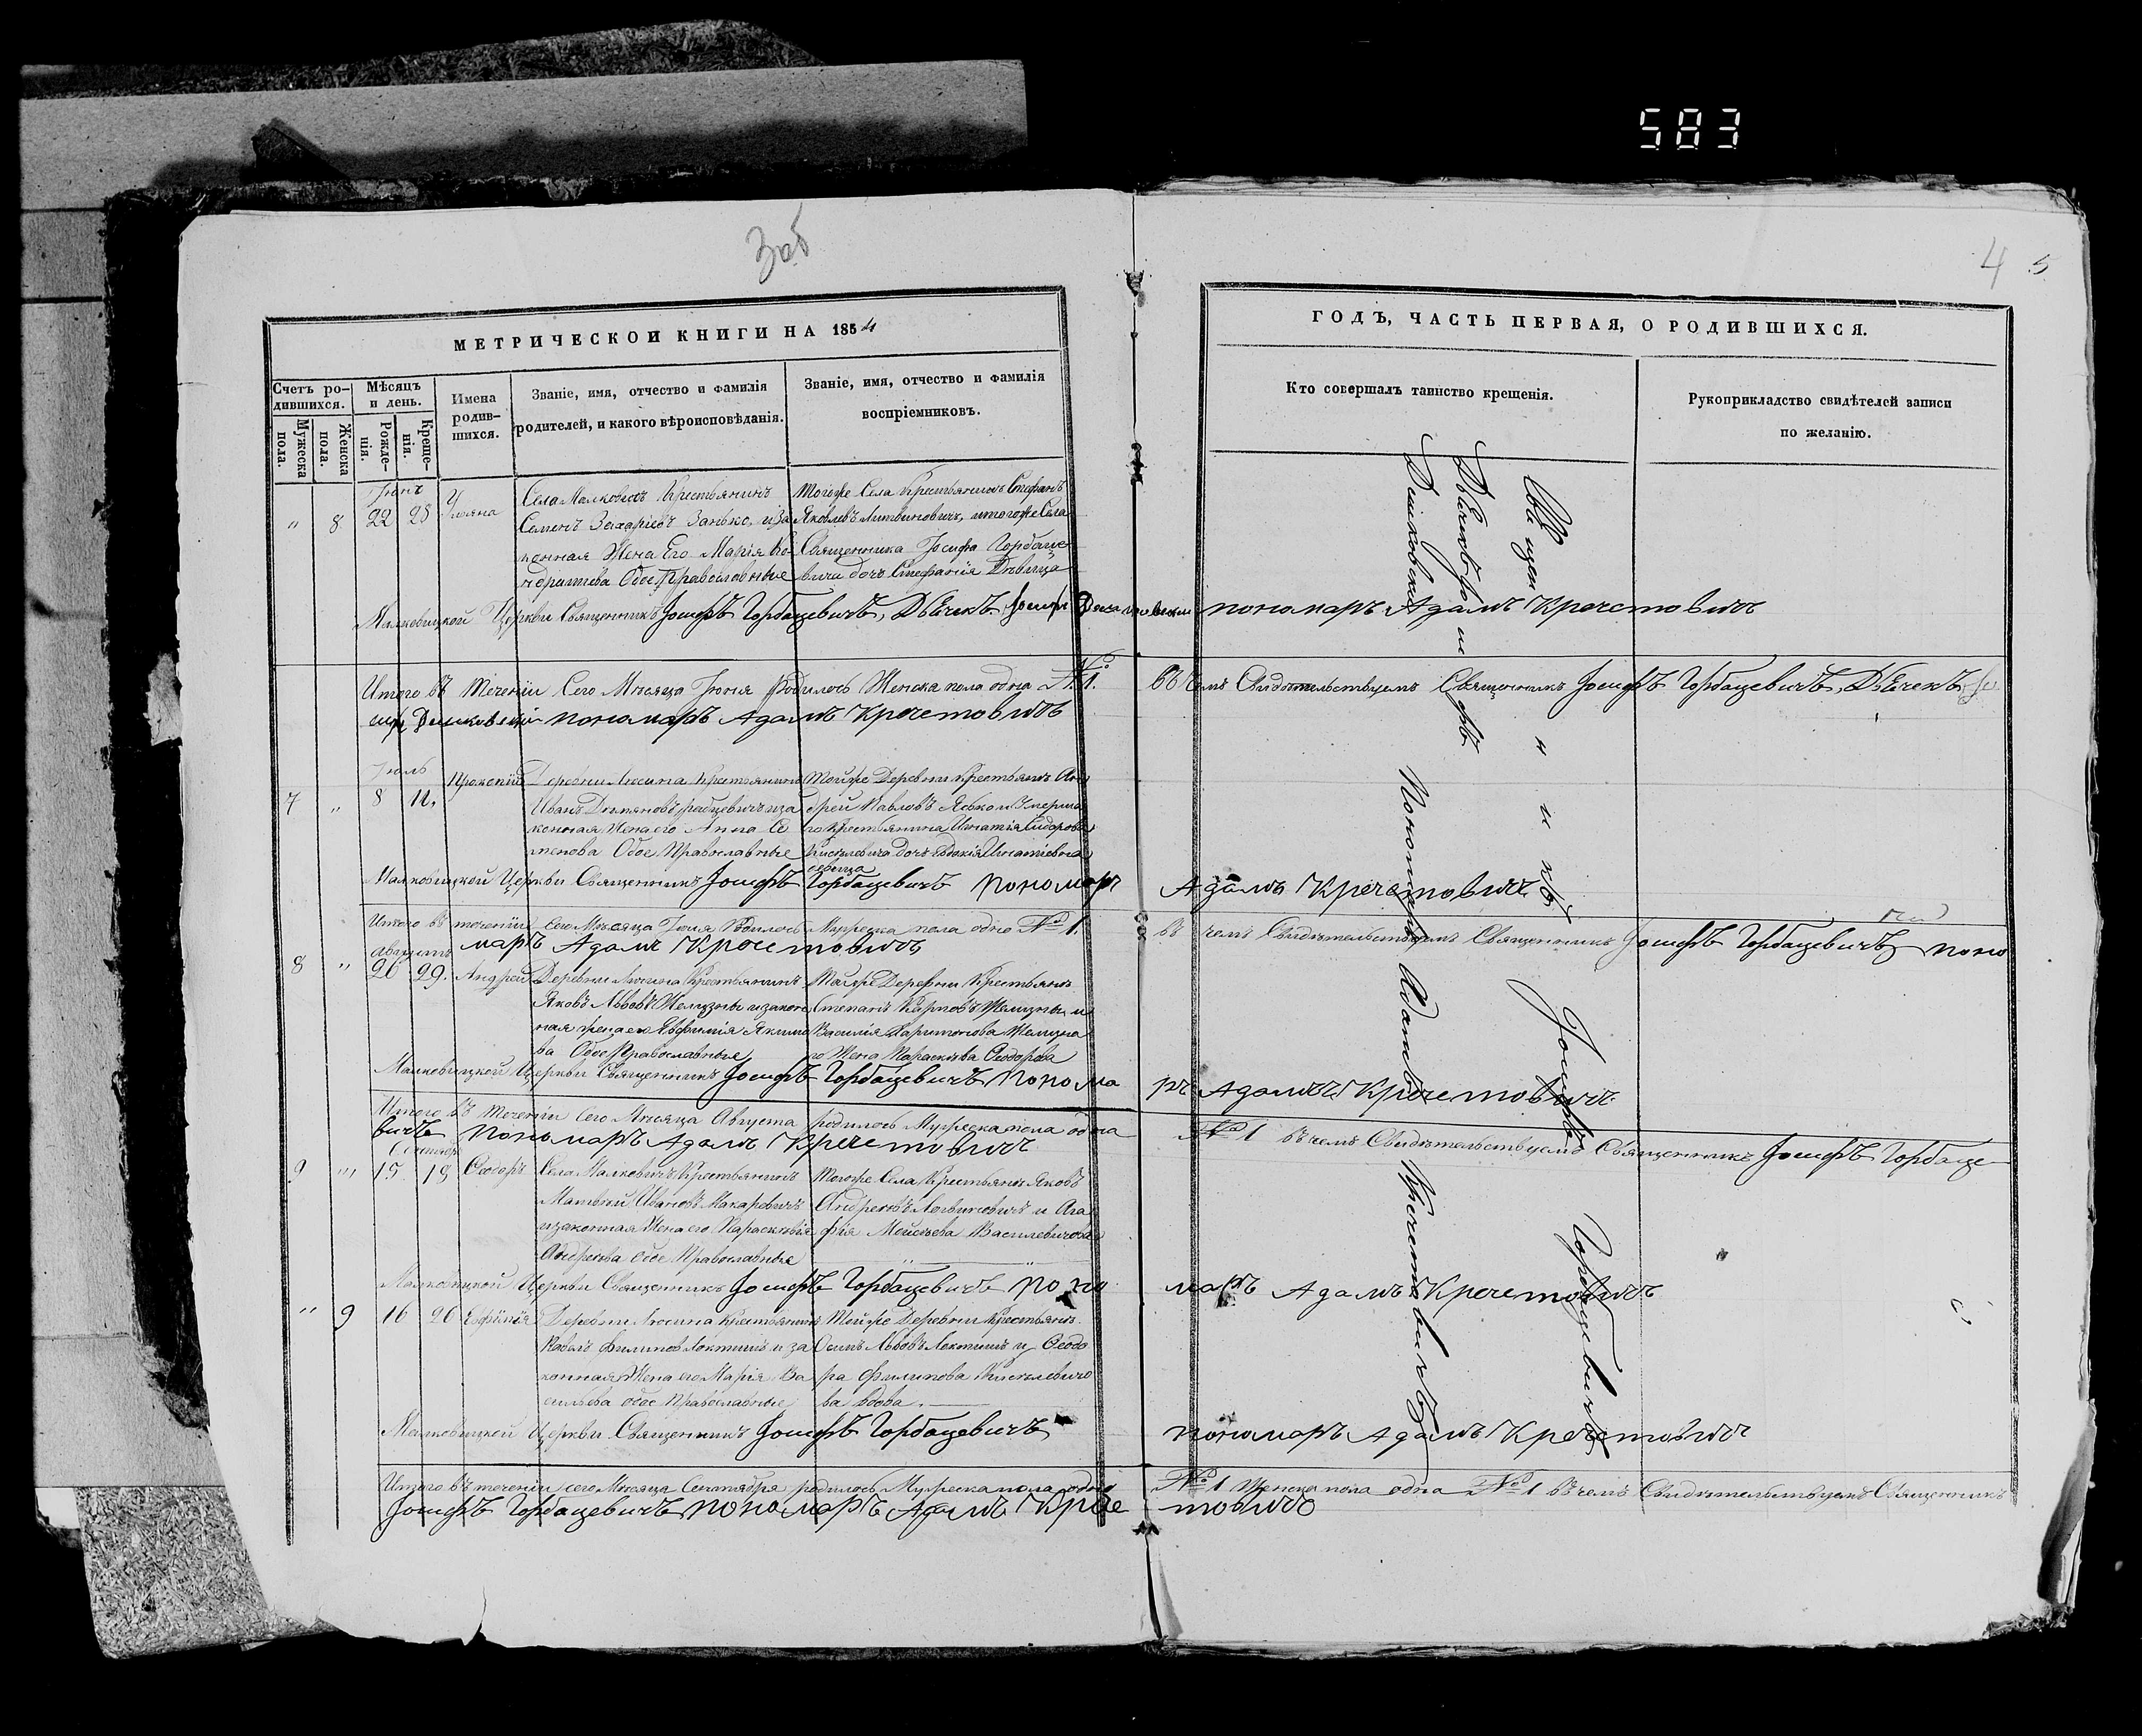 583
3об
4 5
МЕТРИЧЕСКОЙ КНИГИ НА 1854
Счетъ родившихся.
Мужеска пола.
Женска пола.
Мѣсяцъ и день.
Рожденія.
Крещенія.
Имена родившихся.
Званіе, имя, отчество и фамилія
родителей, и какого вѣроисповѣданія.
Званіе, имя, отчество и фамилія
воспріемниковъ.
ГОДЪ, ЧАСТЬ ПЕРВАЯ, О РОДИВШИХСЯ.
Кто совершалъ таинство крещенія.
Рукоприкладство свидѣтелей записи
по желанію.
Іюнь
" 8 22 28
Села Малковичъ Крестьянинъ
Семенъ Захаріевъ Занько, и за
конная Жена Его Марія
Обое Православные
Тойже Села Крестьянинъ Стефанъ
Яковлевъ Литвиновичъ, и тогоже Села
Священника Іосифа Горбаце
вича дочь Стефанія Дѣвица
Малковицкой Церкви Священникъ Іосифъ Горбацевичъ, Дьячекъ Іосифъ пономаръ Адамъ Кречетовичъ
Итого въ теченіи Сего Мѣсяца Іюня Родилось Женска пола одна №1. въ чемъ Свидѣтельствуемъ Священникъ Іосифъ Горбацевичъ, Дьячекъ Іо
сифъ пономаръ Адамъ Кречетовичъ
Іюль
7 " 8 11, Прокопій
Деревни Люсина Крестьянинъ
Иванъ Демьяновъ и за
конная Жена его Анна Се
менова Обое Православные
Тойже Деревни Крестьянъ Ан
дрей Павловъ Ябко и Умерша
го Крестьянина Игнатія Сидорова
Киселевича дочь Евдокія Игнатіевна
девица
Малковицкой Церкви Священникъ Іосифъ Горбацевичъ Пономарь Адамъ Кречетовичъ
Итого въ теченіи сего Мѣсяца Іюля Родилось Мужеска пола одно №1. въ чемъ Свидѣтельствуемъ Священникъ Іосифъ Горбацевичъ поно
маръ Адамъ Кречетовичъ
Августъ
8 " 26 29. Андрей
Деревни Люсина Крестьянинъ
Яковъ Львовъ Желизны и закон
ная жена его Евфимія Якимо
ва Обое Православные
Тойже Деревни Крестьянъ
Степанъ Карповъ Желизны и
Василія Харитонова Желизна
го Жена Параскева Ѳеодорова
Малковицкой Церкви Священникъ Іосифъ Горбацевичъ Понома ръ Адамъ Кречетовичъ
Итого въ теченіи сего Мѣсяца Августа родилось Мужеска пола одна №1 въ чемъ Свидѣтельствуемъ Священникъ Іосифъ Горбаце
вичъ Пономаръ Адамъ Кречетовичъ
Сентябр
9 " 15 18 Ѳеодоръ
Села Малковичъ Крестьянинъ
Матвѣй Ивановъ Макаревичъ
и законная Жена его Параскевія
Андреева обое Православные
Тогоже Села Крестьянъ Яковъ
Андреевъ Логвиновичъ и Ага
фія Моисеева Василевичова
Малковицкой Церкви Священникъ Іосифъ Горбацевичъ поно маръ Адамъ Кречетовичъ
" 9 16 26
Деревни Люсина Крестьянинъ
Павелъ Филиповъ Локтишъ и за
конная Жена его Марія Ва
сильева обое Православные
Тойже Деревни Крестьянъ
Осипъ Львовъ Локтишъ и Ѳеодо
ра Филипова Киселевичо
ва вдова.
Малковицкой Церкви Священникъ Іосифъ Горбацевичъ пономаръ Адамъ Кречетовичъ
Итого въ теченіи сего Мѣсяца Сентября родилось Мужеска пола одно №1 Женска пола одна №1 въ чемъ Свидѣтельствуемъ Священникъ
Іосифъ Горбацевичъ пономаръ Адамъ Кречетовичъ
Священникъ Іосифъ Горбацевичъ
Дьячекъ Іосифъ
Пономарь Адамъ Кречетовичъ